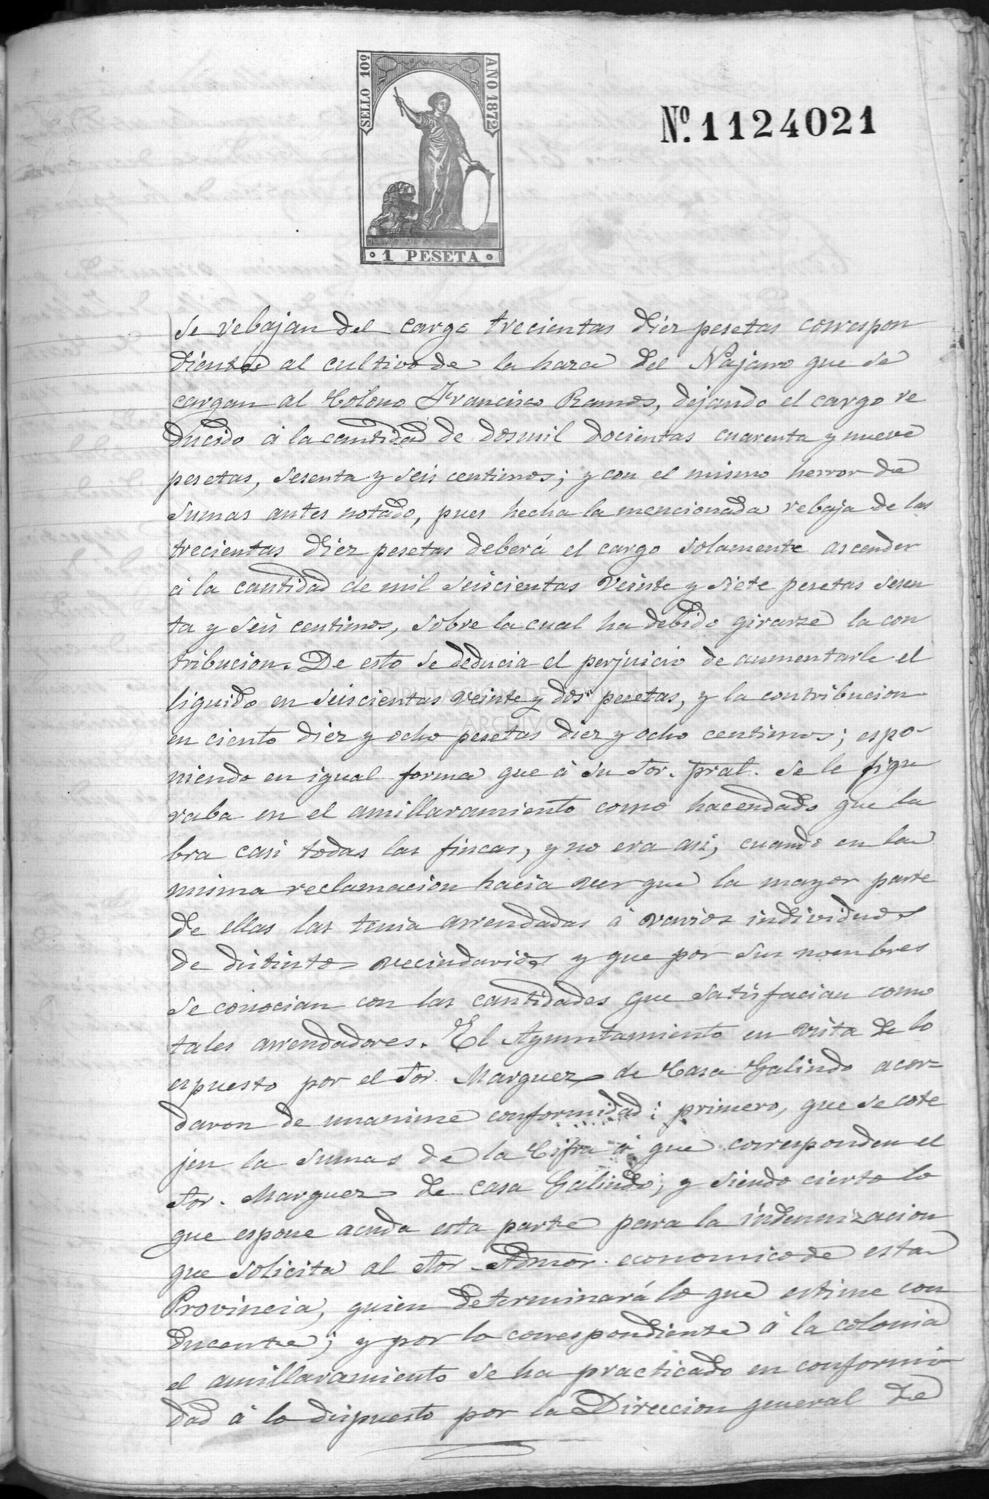 SELLO 10º
AÑO 1872
1 PESETA
Nº. 1124021
se rebajan del cargo trecientas diez pesetas correspon
dientes al cultivo de la haza del Najarro que se
cargan al Colono Francisco Ramos, dejando el cargo re
ducido á la cantidad de dosmil docientas cuarenta y nueve
pesetas, sesenta y seis centimos; y con el mismo herror de
sumas antes notado, pues hecha la mencionada rebaja de las
trecientas diez pesetas deberá el cargo solamente ascender
á la cantidad de mil seiscientas veinte y siete pesetas sesen
ta y seis centimos, sobre la cual ha debido girarse la con
tribucion. De esto se deducia el perjuicio de aumentarle el
liquido en seiscientas veinte y dos pesetas, y la contribucion
en ciento diez y ocho pesetas diez y ocho centimos; espo-
niendo en igual forma que á su Sor. pral. se le figu
raba en el amillaramiento como hacendado que la
bra casi todas las fincas, y no era asi, cuando en la
misma reclamacion hacia ver que la mayor parte
de ellas las tenia arrendadas á varios individuos
de distintos vecindarios y que por sus nombres
se conocian con las cantidades que satisfacian como
tales arrendadores. El Ayuntamiento en vista de lo
espuesto por el Sor. Marquez de Casa Galindo acor-
daron de unanime conformidad: primero, que se cote
jen la sumas de la Cifra á que corresponden el
Sor. Marquez de casa Galindo; y siendo cierto lo
que espone acuda esta parte para la indemnizacion
que solicita al Sor. Admor. economico de esta
Provincia, quien determinará lo que estime con
ducente; y por lo correspondiente á la colonia
el amillaramiento se ha practicado en conformi
dad á lo dispuesto por la Direccion general de
ARCHIVO